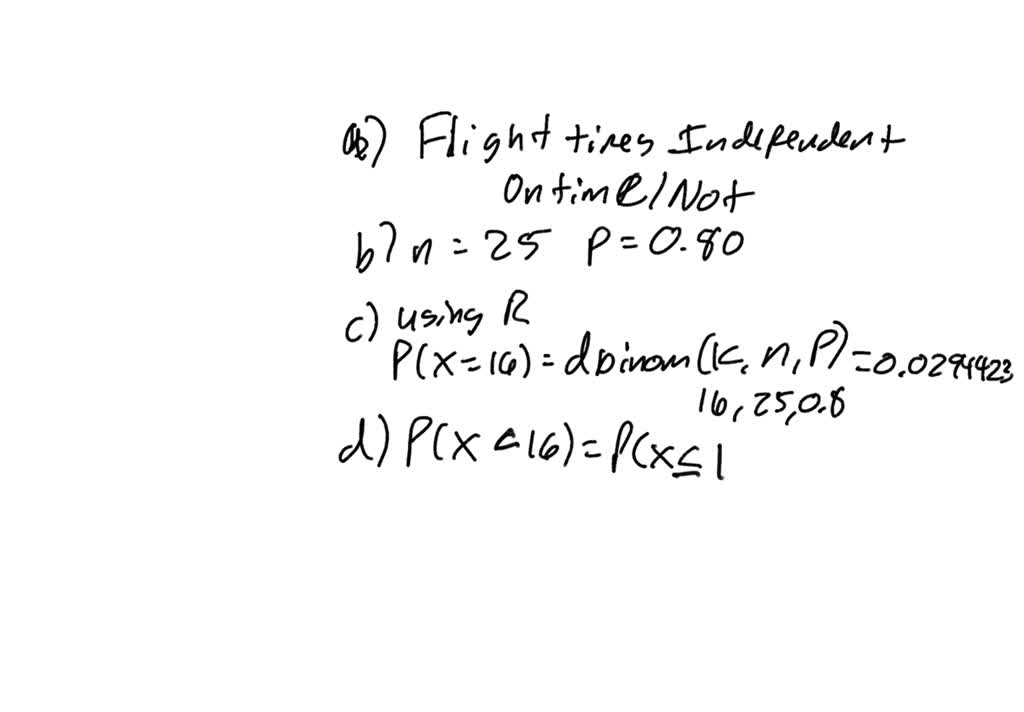 a) Flight times Independent
On time/Not
b) n = 25 p = 0.80
c) using R
P(X=16) = dbinom(k, n, P) = 0.0294423
16, 25, 0.8
d) P(X < 16) = P(X ≤ 1